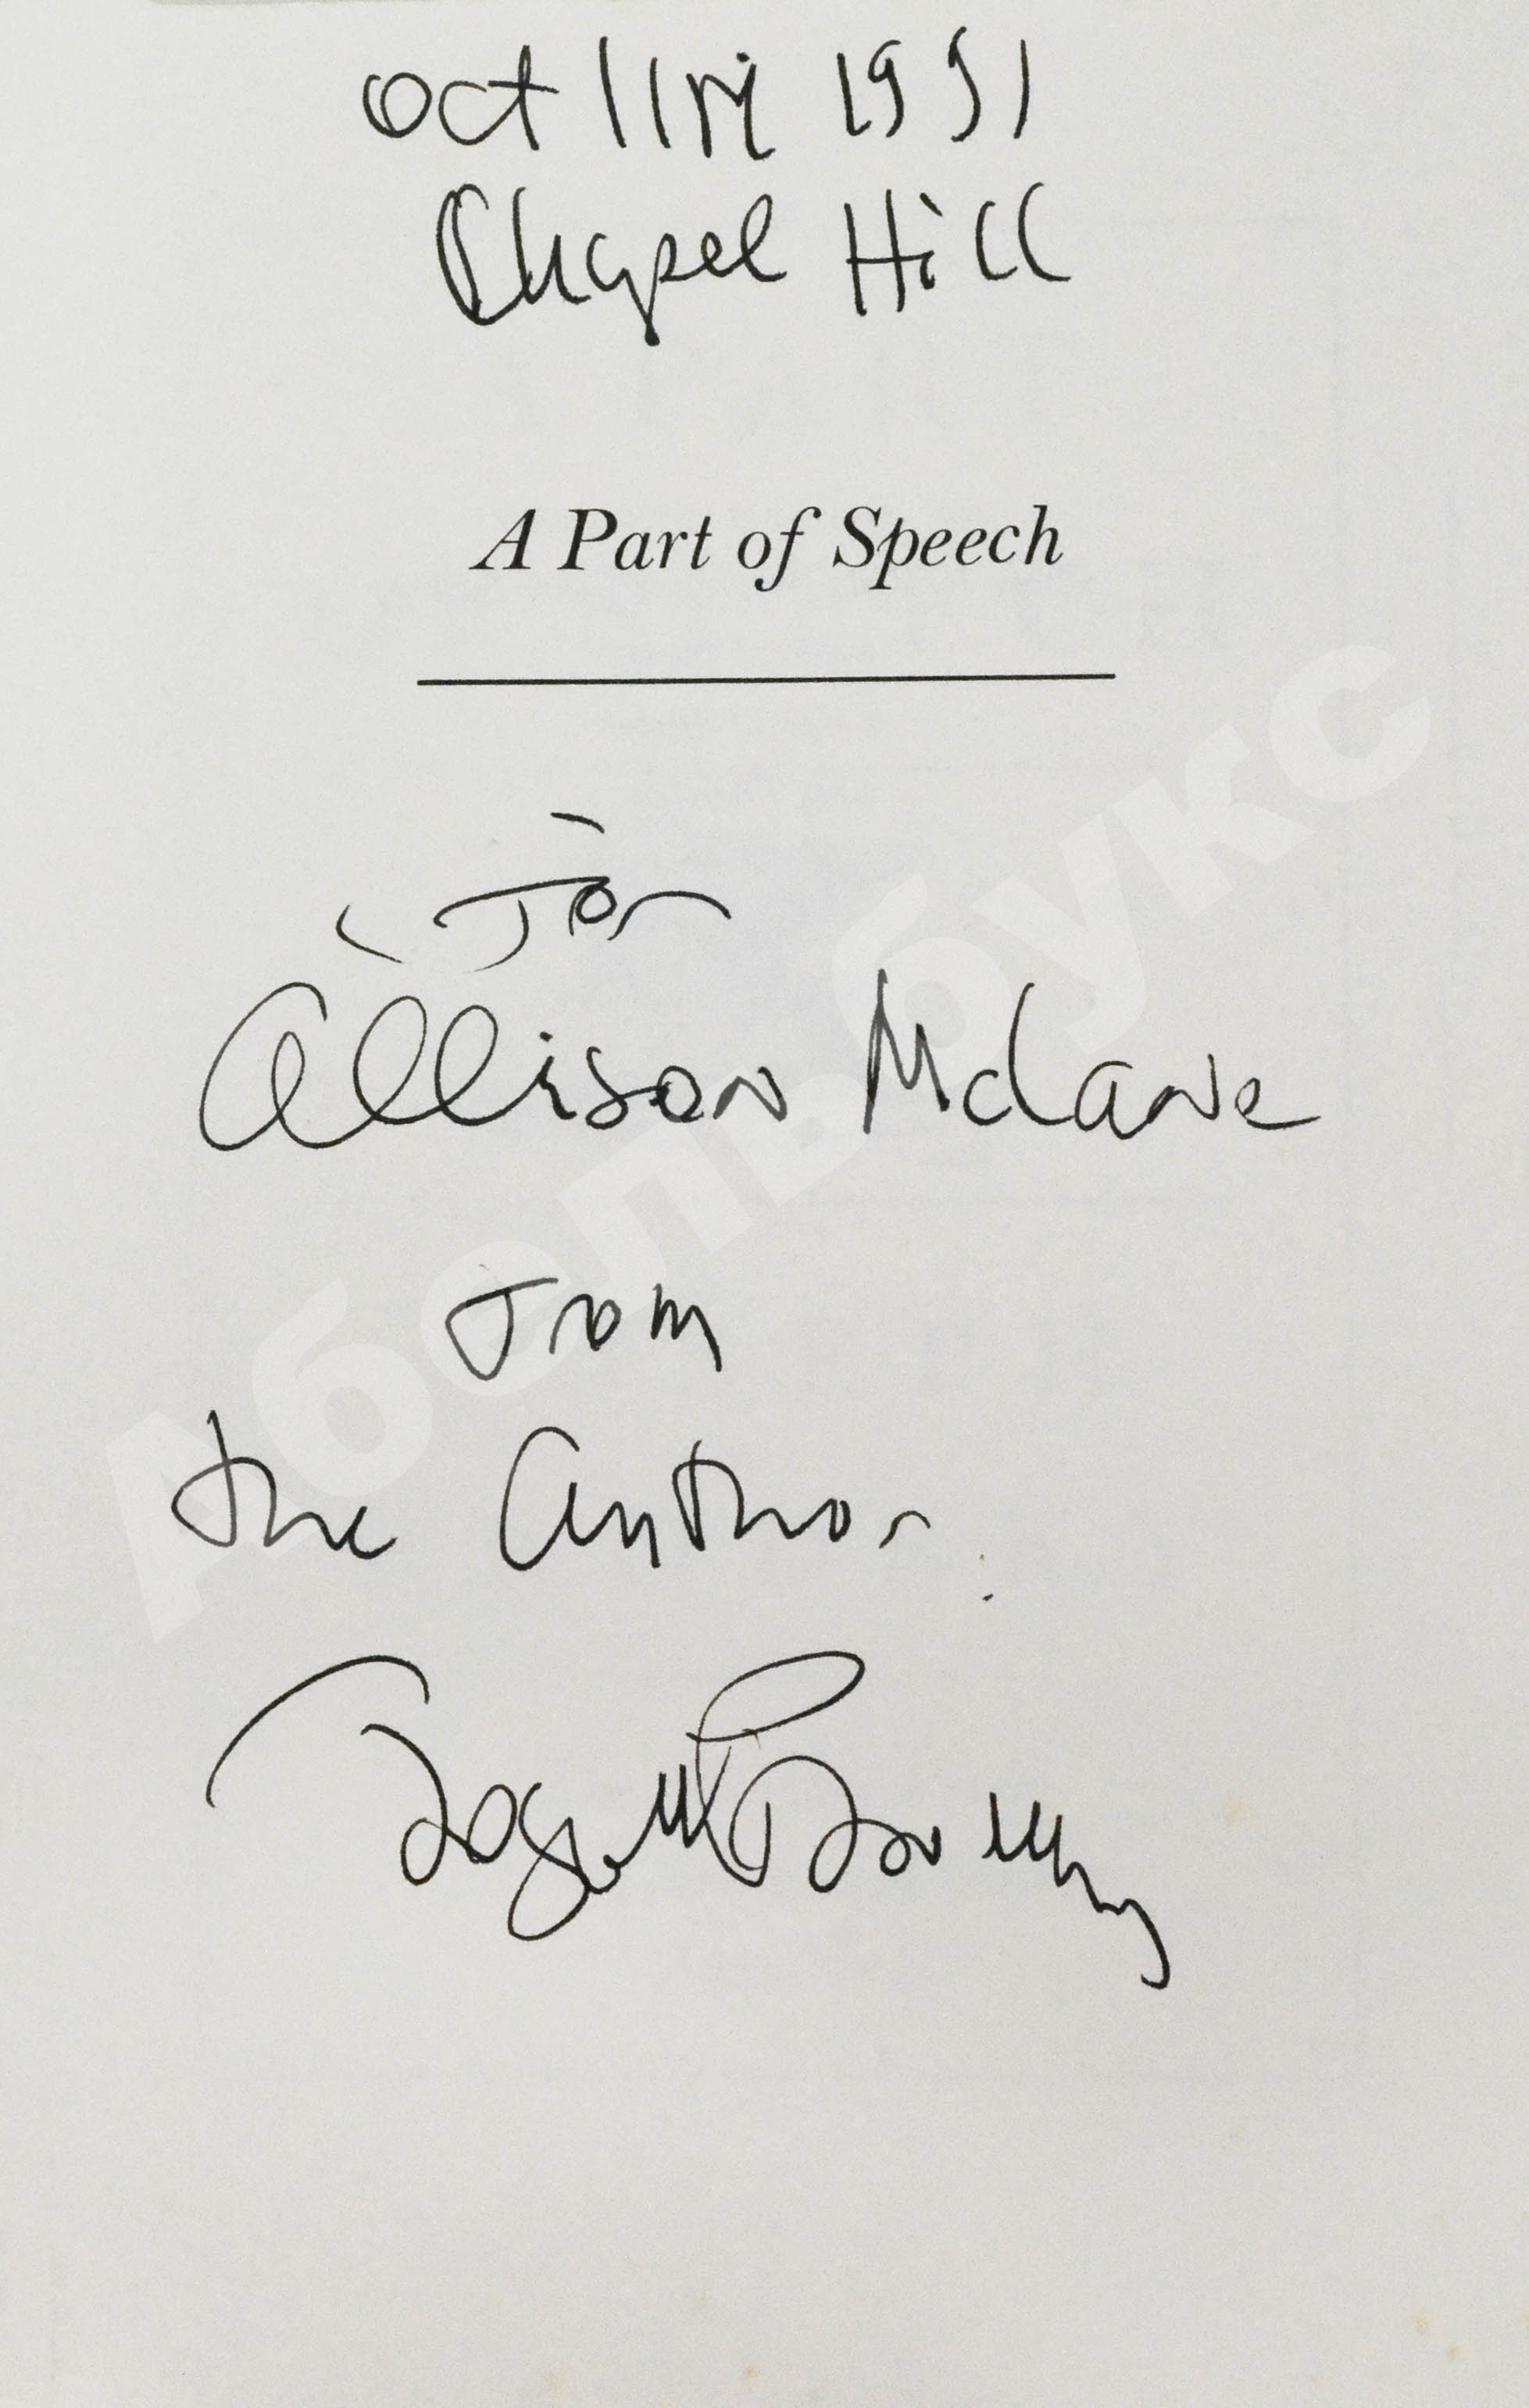 Oct 11th 1991
Chapel Hill
A Part of Speech
For
Allison McLane
From
the author
Joseph Brodsky
Абельбукс